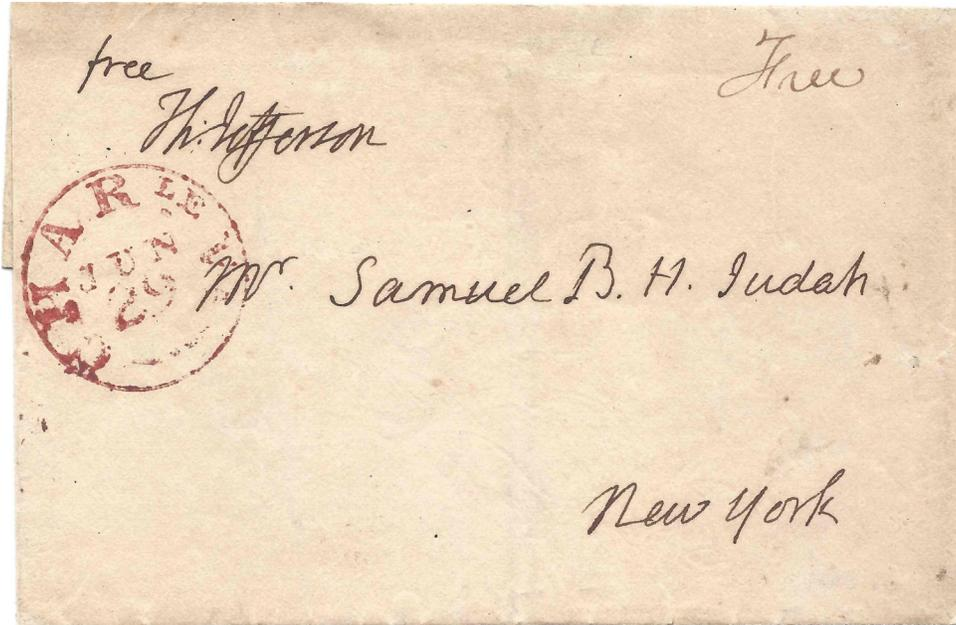 free
Free
Th: Jefferson
CHARLE
JUN
29
Mr. Samuel B. H. Judah
New York